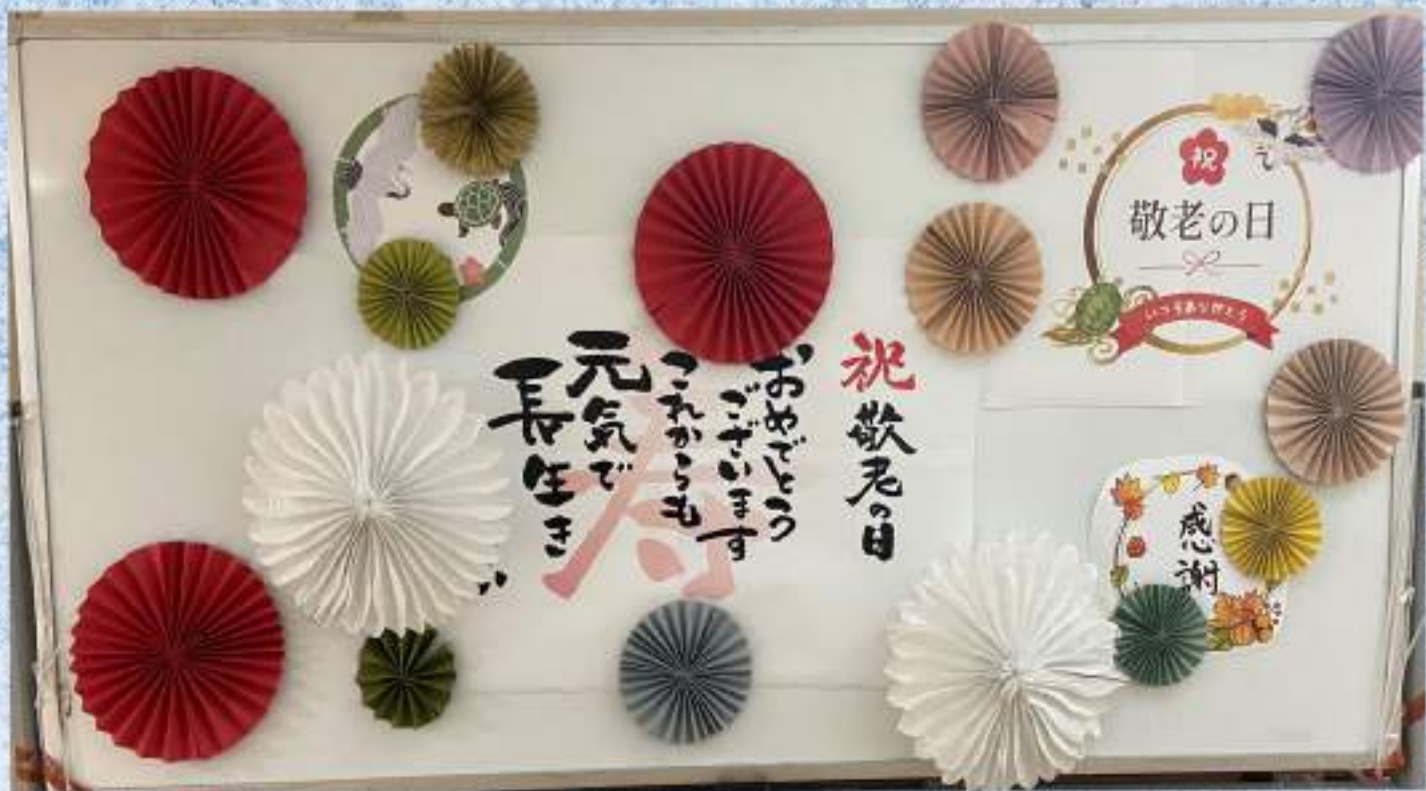 祝
敬老の日
いつもありがとう
祝敬老の日
おめでとう
ございます
これからも
元気で
長生き
寿
感謝